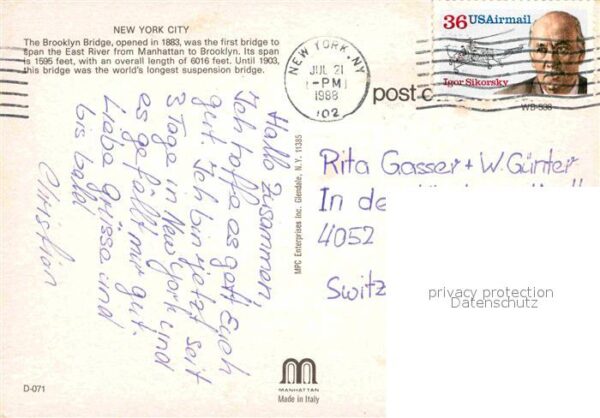 NEW YORK CITY
The Brooklyn Bridge, opened in 1883, was the first bridge to
span the East River from Manhattan to Brooklyn. Its span
is 1595 feet, with an overall length of 6016 feet. Until 1903,
this bridge was the world's longest suspension bridge.
Hallo zusammen,
Ich hoffe es gaht Euch
gut. Ich bin jetzt seit
3 Tage in New York und
es gefällt mir gut.
Liebe Grüsse und
bis bald
Christian
MPC Enterprises Inc. Glendale, N.Y. 11385
NEW YORK NY
JUL 21
PM
1988
102
36 USAirmail
Igor Sikorsky
post c
WB-538
Rita Gasser + W. Günter
In de
4052
Switz
privacy protection
Datenschutz
D-071
MANHATTAN
Made in Italy